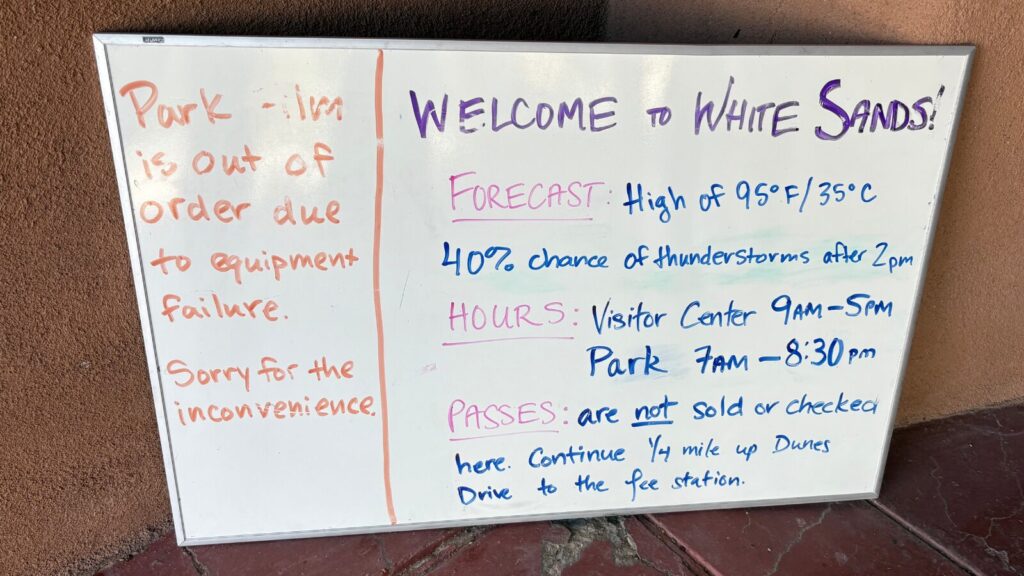 Park
is out of
order due
to equipment
failure.
Sorry for the
inconvenience.
WELCOME TO WHITE SANDS!
FORECAST: High of 95°F/35°C
40% chance of thunderstorms after 2pm
HOURS: Visitor Center 9AM-5PM
Park 7AM-8:30pm
PASSES: are not sold or checked
here. Continue 1/4 mile up Dunes
Drive to the fee station.